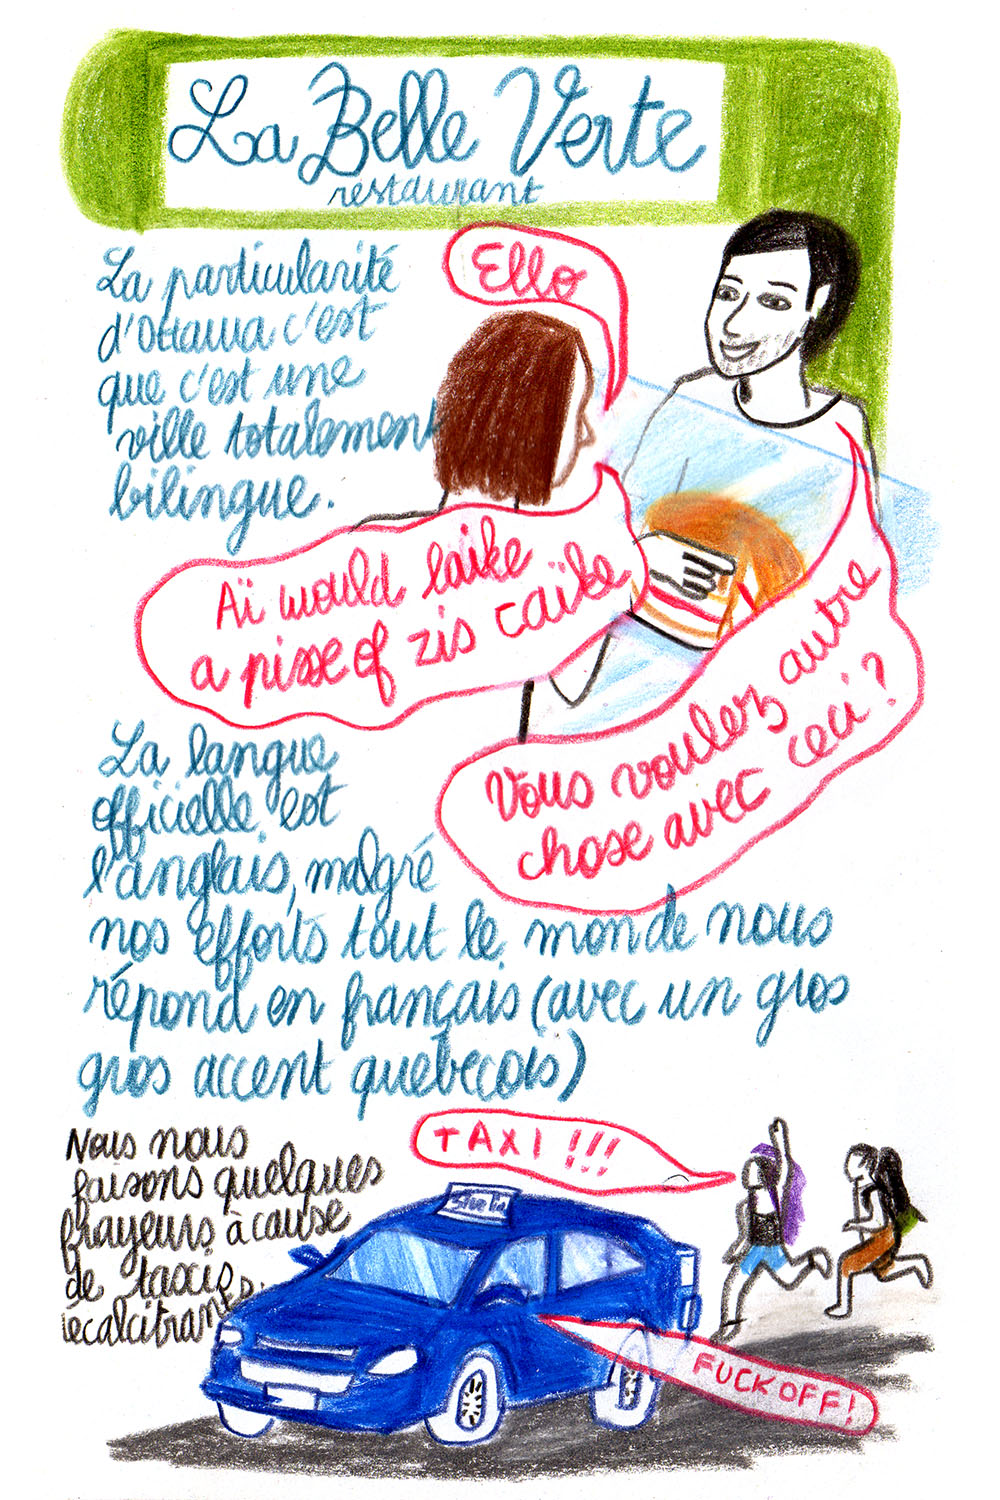 La Belle Verte
restaurant
La particularité
d'Ottawa c'est
que c'est une
ville totalement
bilingue.
Ello
Aï would laïke
a pisse of zis caïke
Vous voulez autre
chose avec ceci?
La langue
officielle est
l'anglais, malgré
nos efforts tout le monde nous
répond en français (avec un gros
gros accent québecois)
Nous nous
faisons quelques
frayeurs à cause
de taxis
récalcitrants.
TAXI !!!
FUCK OFF!